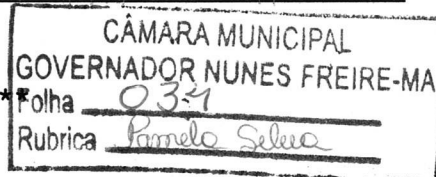 CÂMARA MUNICIPAL
GOVERNADOR NUNES FREIRE-MA
**Folha 034
Rubrica Pamela Selva